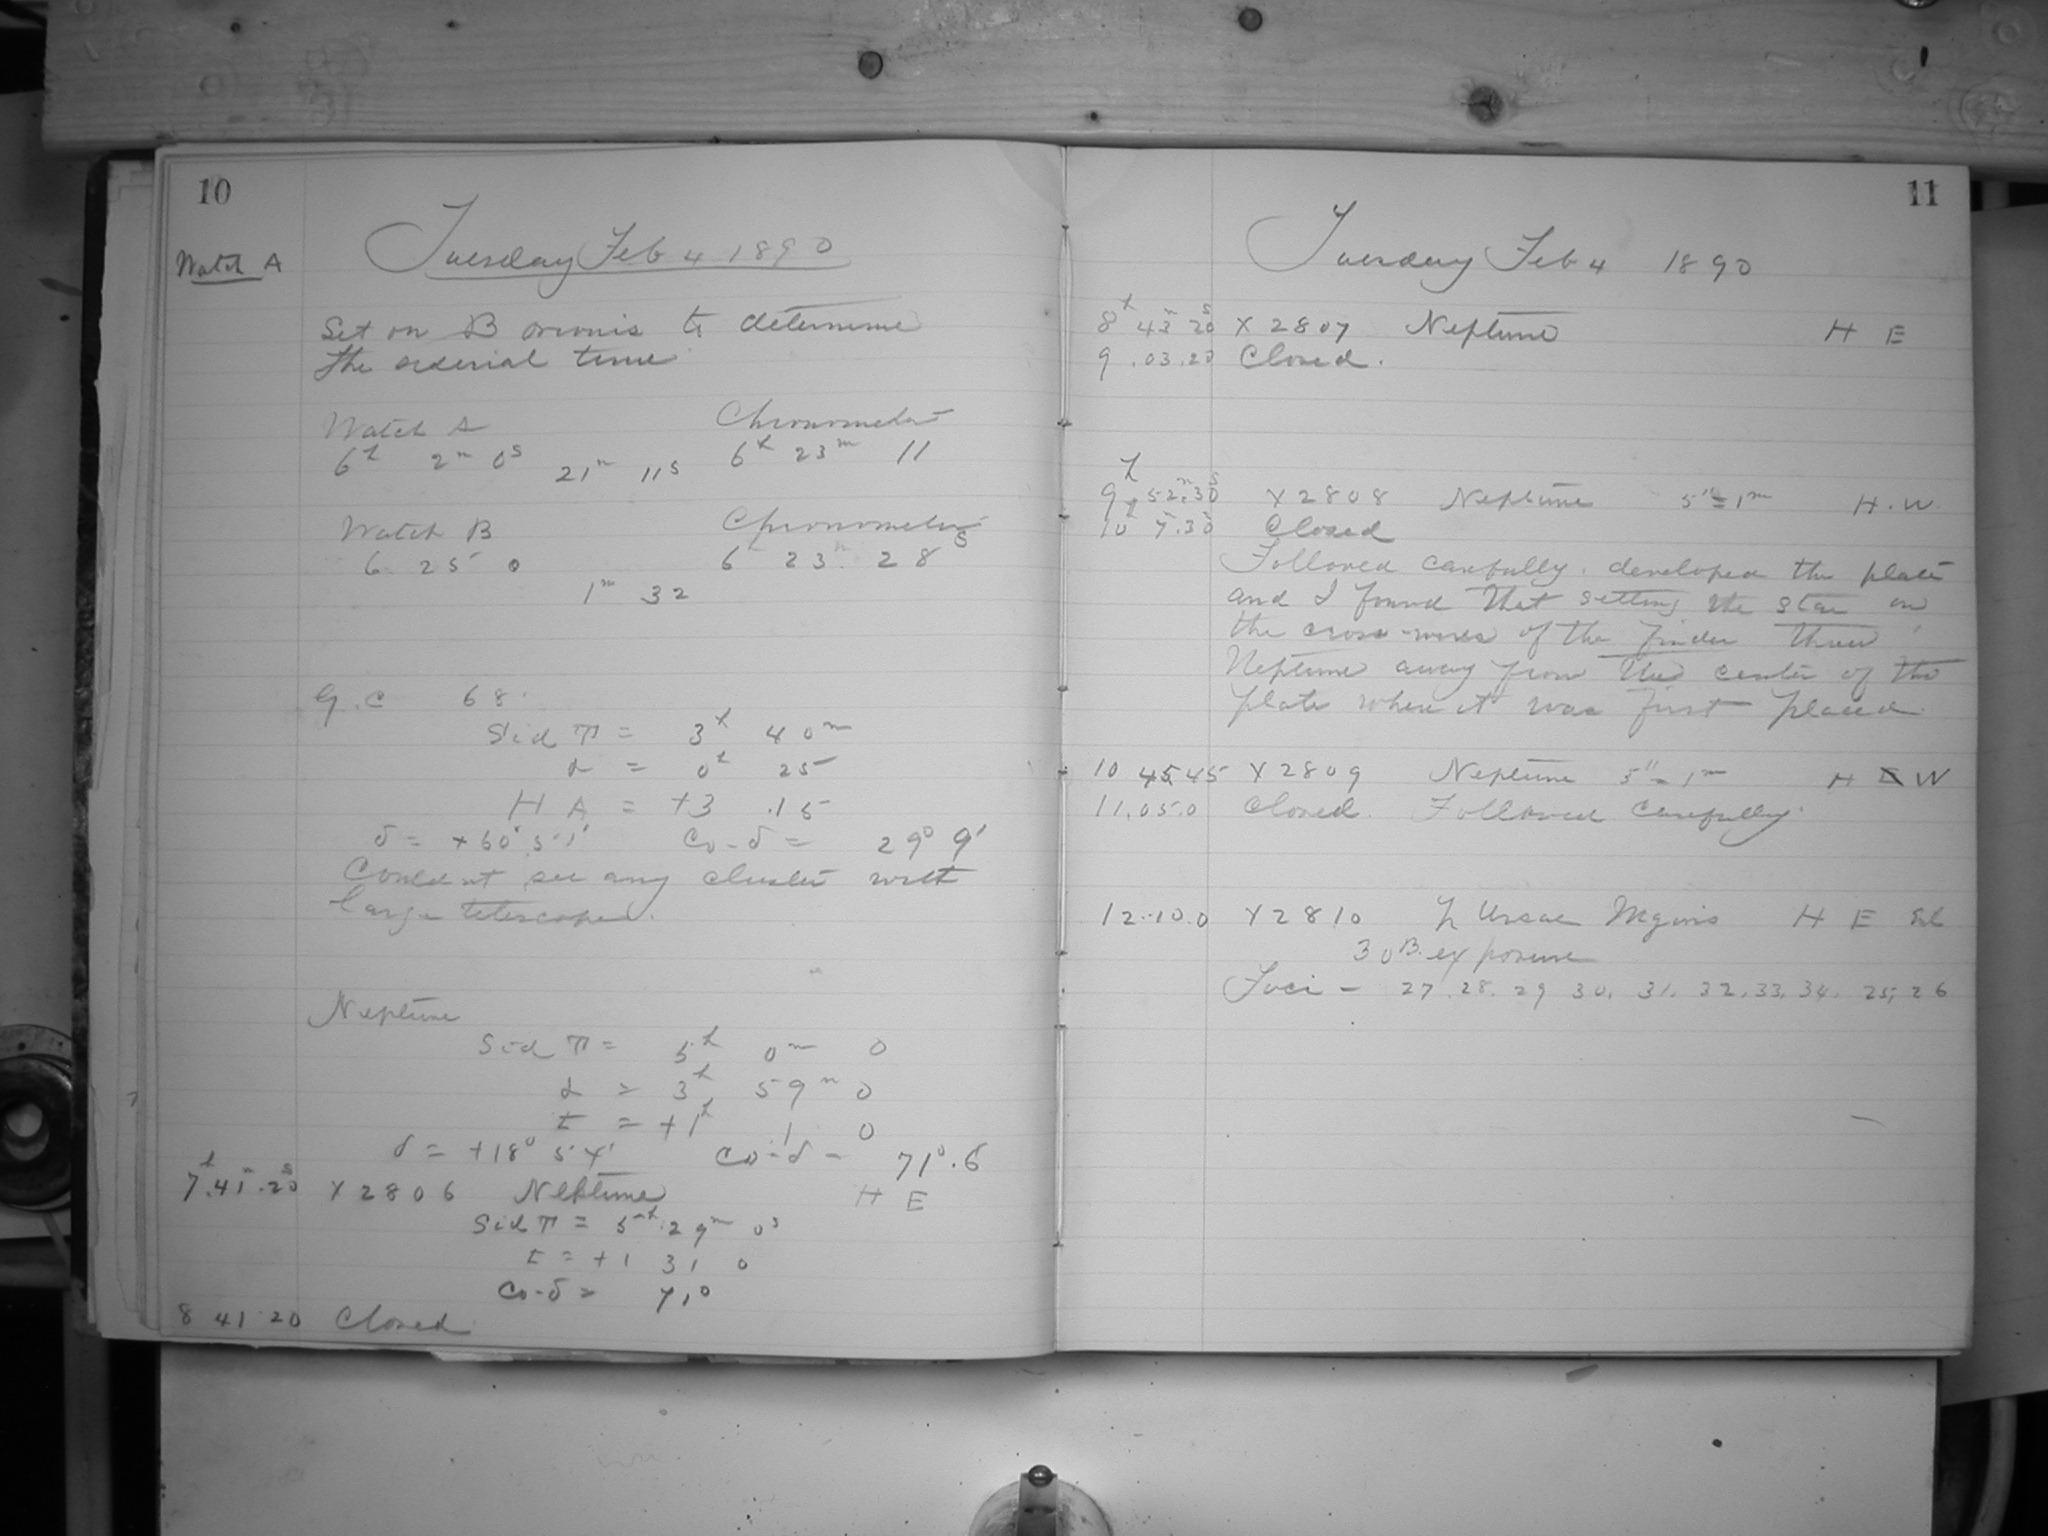 10
Watch A
Tuesday Feb 4 1890
Set on B orionis to determine
the siderial time
Watch A Chronometer
6h 2m 0s 21m 11s 6h 23m 11
Watch B Chronometer
6 25 0 6 23m 28s
1m 32
G.C 68.
Sid T = 3h 40m
α = 0h 25
H A = +3 .15
δ = +60° 51' Co-δ = 29° 9'
Could nt see any cluster with
large telescope.
Neptune
Sid T = 5h 0m 0
α = 3h 59m 0
t = +1h 1 0
δ = +18° 54' Co-δ = 71°.6
7h.41m.20s X 2806 Neptune H E
Sid T = 5h 29m 0s
t = +1 31 0
Co-δ = 71°
8 41 20 Closed
11
Tuesday Feb 4 1890
8h 43m 20s X 2807 Neptune H E
9.03.20 Closed.
9h 52m.30s X 2808 Neptune 5"=1m H.W.
10h 7m.30s Closed
Followed carefully. developed the plate
and I found that setting the star on
the cross-wires of the finder threw
Neptune away from the center of the
plate where it was first placed.
10 45 45 X 2809 Neptune 5"=1m H W
11.05.0 closed. Followed carefully.
12.10.0 X 2810 Ursae Mgoris H E
30 B. exposure
Foci - 27. 28. 29 30. 31. 32. 33. 34. 25, 26